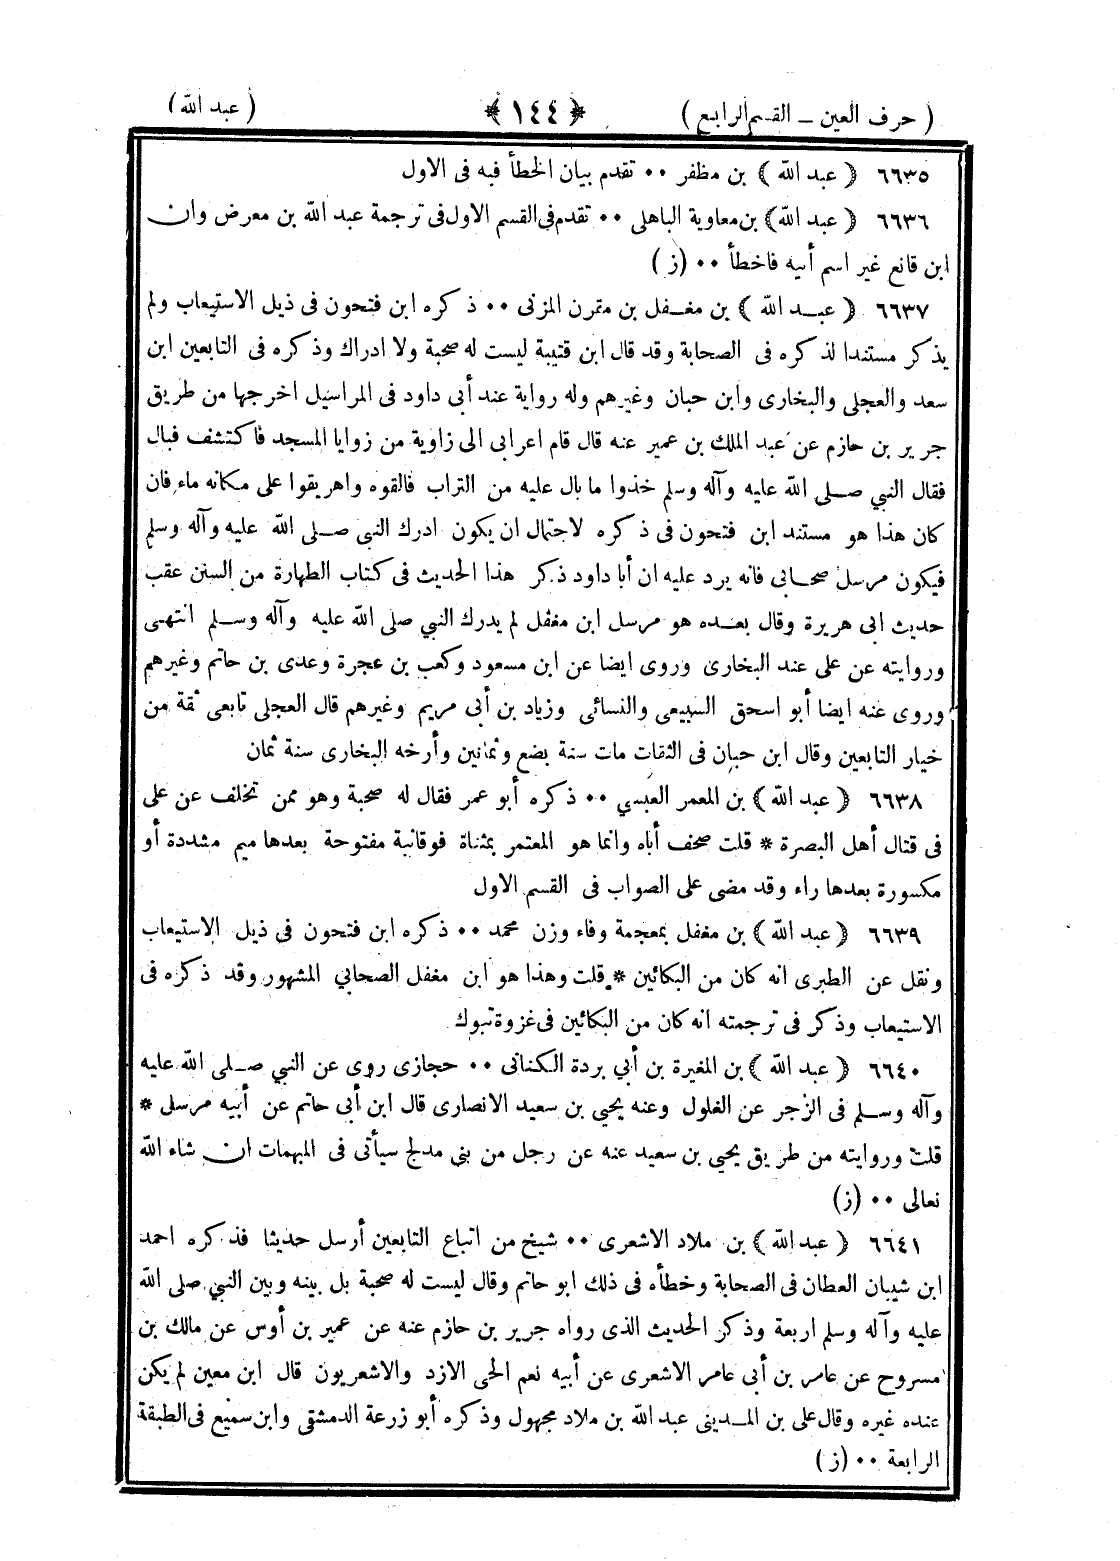 ( حرف العين ــ القسم الرابع ) ﴿ ١٤٤ ﴾ ( عبد الله )
٦٦٣٥ ﴿ عبد الله ﴾ بن مظفر ٠٠ تقدم بيان الخطأ فيه فى الاول
٦٦٣٦ ﴿ عبد الله ﴾ بن معاوية الباهلى ٠٠ تقدم فى القسم الاول فى ترجمة عبد الله بن معرض وان
ابن قانع غير اسم أبيه فاخطأ ٠٠ (ز)
٦٦٣٧ ﴿ عبد الله ﴾ بن مغفل بن مقرن المزنى ٠٠ ذكره ابن فتحون فى ذيل الاستيعاب ولم
يذكر مستندا لذكره فى الصحابة وقد قال ابن قتيبة ليست له صحبة ولا ادراك وذكره فى التابعين ابن
سعد والعجلى والبخارى وابن حبان وغيرهم وله رواية عند أبى داود فى المراسيل اخرجها من طريق
جرير بن حازم عن عبد الملك بن عمير عنه قال قام اعرابى الى زاوية من زوايا المسجد فاكتشف فبال
فقال النبي صلى الله عليه وآله وسلم خذوا مابال عليه من التراب فالقوه واهريقوا على مكانه ماء فان
كان هذا هو مستند ابن فتحون فى ذكره لاحتمال ان يكون ادرك النبى صلى الله عليه وآله وسلم
فيكون مرسل صحابى فانه يرد عليه ان أبا داود ذكر هذا الحديث فى كتاب الطهارة من السنن عقب
حديث ابى هريرة وقال بعده هو مرسل ابن مغفل لم يدرك النبي صلى الله عليه وآله وسلم انتهى
وروايته عن على عند البخارى وروى ايضا عن ابن مسعود وكعب بن عجرة وعدى بن حاتم وغيرهم
وروى عنه ايضا أبو اسحق السبيعى والنسائى وزياد بن أبى مريم وغيرهم قال العجلى تابعى ثقة من
خيار التابعين وقال ابن حبان فى الثقات مات سنة بضع وثمانين وأرخه البخارى سنة ثمان
٦٦٣٨ ﴿ عبد الله ﴾ بن المعمر العبسي ٠٠ ذكره أبو عمر فقال له صحبة وهو ممن تخلف عن على
فى قتال أهل البصرة * قلت صحف أباه وانما هو المعتمر بمثناة فوقانية مفتوحة بعدها ميم مشددة أو
مكسورة بعدها راء وقد مضى على الصواب فى القسم الاول
٦٦٣٩ ﴿ عبد الله ﴾ بن مغفل بمعجمة وفاء وزن محمد ٠٠ ذكره ابن فتحون فى ذيل الاستيعاب
ونقل عن الطبرى انه كان من البكائين * قلت وهذا هو ابن مغفل الصحابي المشهور وقد ذكره فى
الاستيعاب وذكر فى ترجمته انه كان من البكائين فى غزوة تبوك
٦٦٤٠ ﴿ عبد الله ﴾ بن المغيرة بن أبي بردة الكنانى ٠٠ حجازى روى عن النبي صلى الله عليه
وآله وسلم فى الزجر عن الغلول وعنه يحيى بن سعيد الانصارى قال ابن أبى حاتم عن أبيه مرسل *
قلت وروايته من طريق يحيى بن سعيد عنه عن رجل من بنى مدلج سيأتى فى المبهمات ان شاء الله
تعالى ٠٠ (ز)
٦٦٤١ ﴿ عبد الله ﴾ بن ملاد الاشعرى ٠٠ شيخ من اتباع التابعين أرسل حديثا فذكره احمد
ابن شيبان العطان فى الصحابة وخطأه فى ذلك ابو حاتم وقال ليست له صحبة بل بينه وبين النبي صلى الله
عليه وآله وسلم اربعة وذكر الحديث الذى رواه جرير بن حازم عنه عن عمير بن أوس عن مالك بن
مسروح عن عامر بن أبى عامر الاشعرى عن أبيه نعم الحى الازد والاشعريون قال ابن معين لم يكن
عنده غيره وقال على بن المدينى عبد الله بن ملاد مجهول وذكره أبو زرعة الدمشقى وابن سميع فى الطبقة
الرابعة ٠٠ (ز)